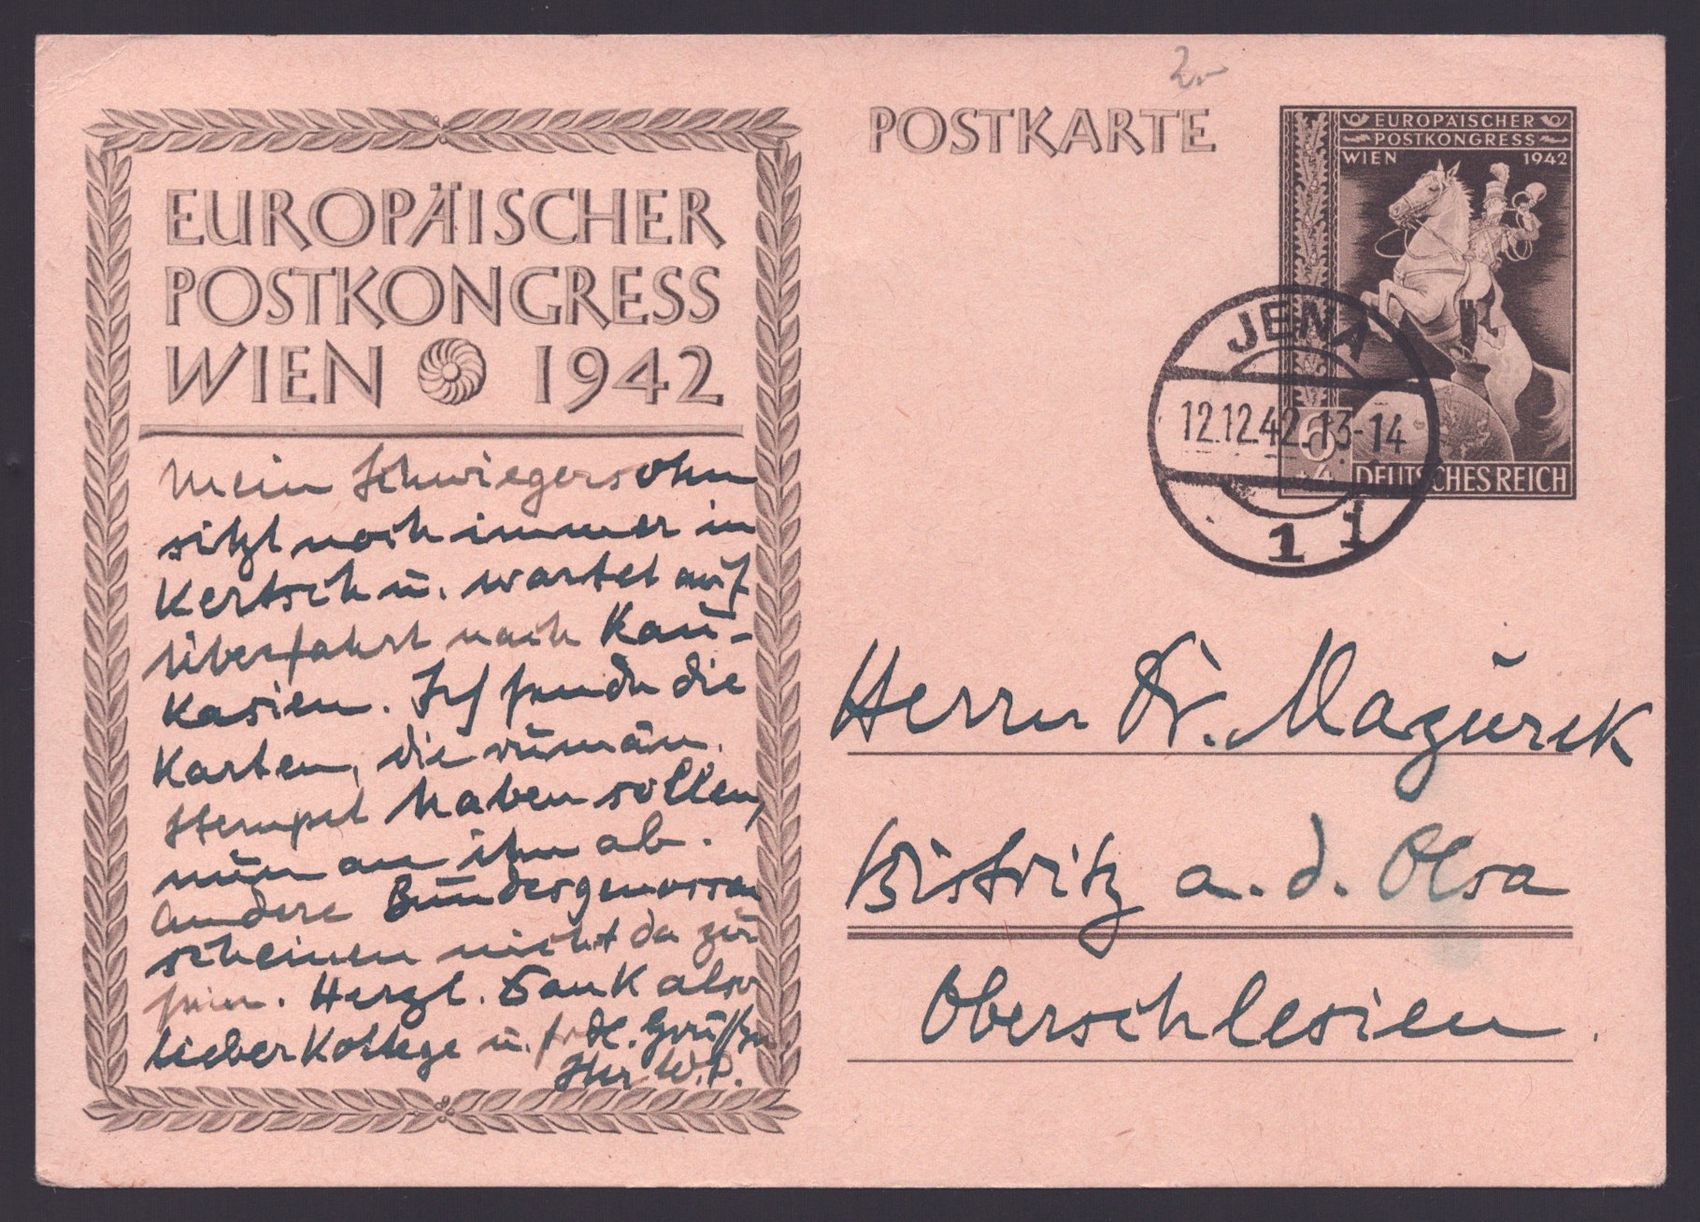 2.-
POSTKARTE
EUROPÄISCHER
POSTKONGRESS
WIEN 1942
DEUTSCHES REICH
6
+4
JENA
12.12.42.13-14
1 1
EUROPÄISCHER
POSTKONGRESS
WIEN 1942
Mein Schwiegersohn
sitzt noch immer in
Kertsch u. wartet auf
Überfahrt nach Kau-
kasien. Ich sende die
Karten, die rumän.
Stempel haben sollen,
nun an ihn ab.
Andere Bundesgenossen
scheinen nicht da zu
sein. Herzl. Dank also
lieber Kollege u. frdl. Grüße
Ihr W.P.
Herrn Dr. Mazurek
Bistritz a. d. Olsa
Oberschlesien.